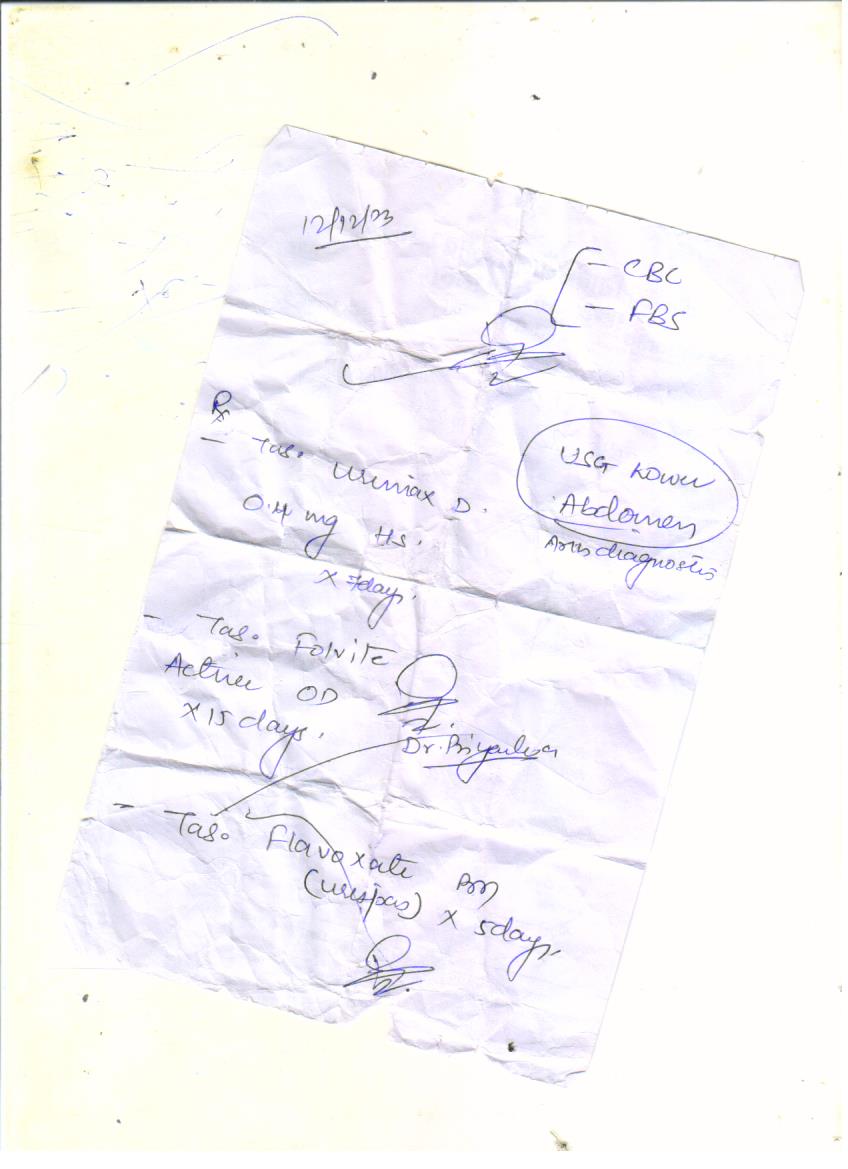 12/12/23
- CBC
- FBS
Rx
- Tab. Urimax D.
0.4 mg HS.
x 7days.
USG Lower
Abdomen
diagnostis
- Tab. Folvite
Active OD
x 15 days.
Dr. Priyanka
- Tab. Flavoxate
(urispas) x 5days.